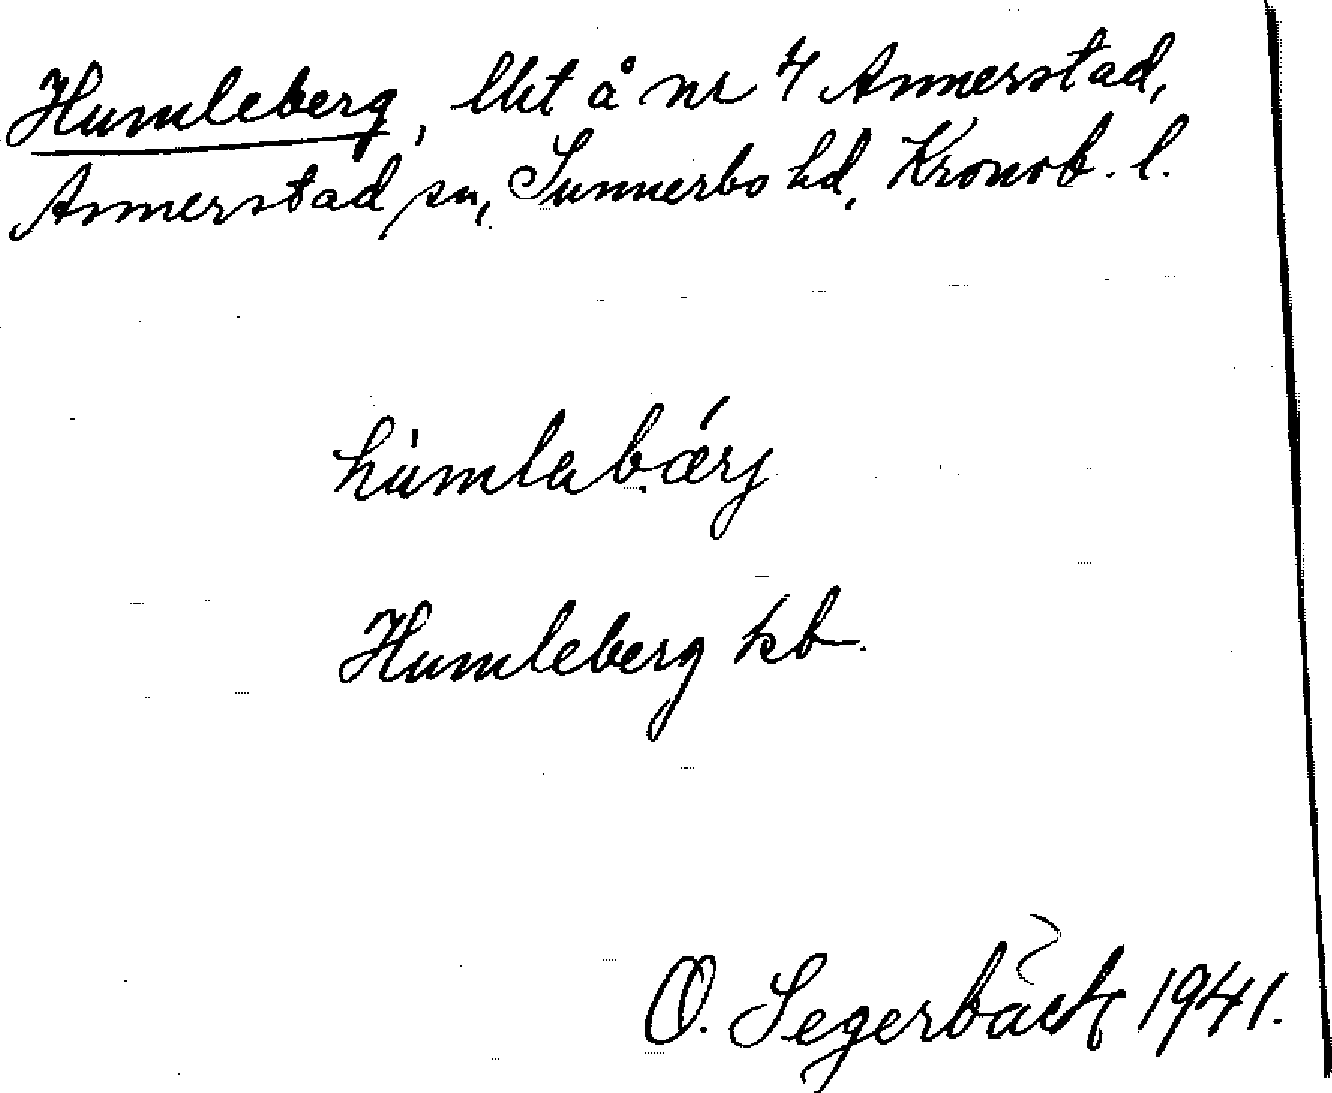 Humleberg, lht å nr 4 Annerstad,
Annerstad sn, Sunnerbo hd, Kronob. l.
hùmlabǽrj
Humleberg kb.
O. Segerbäck 1941.